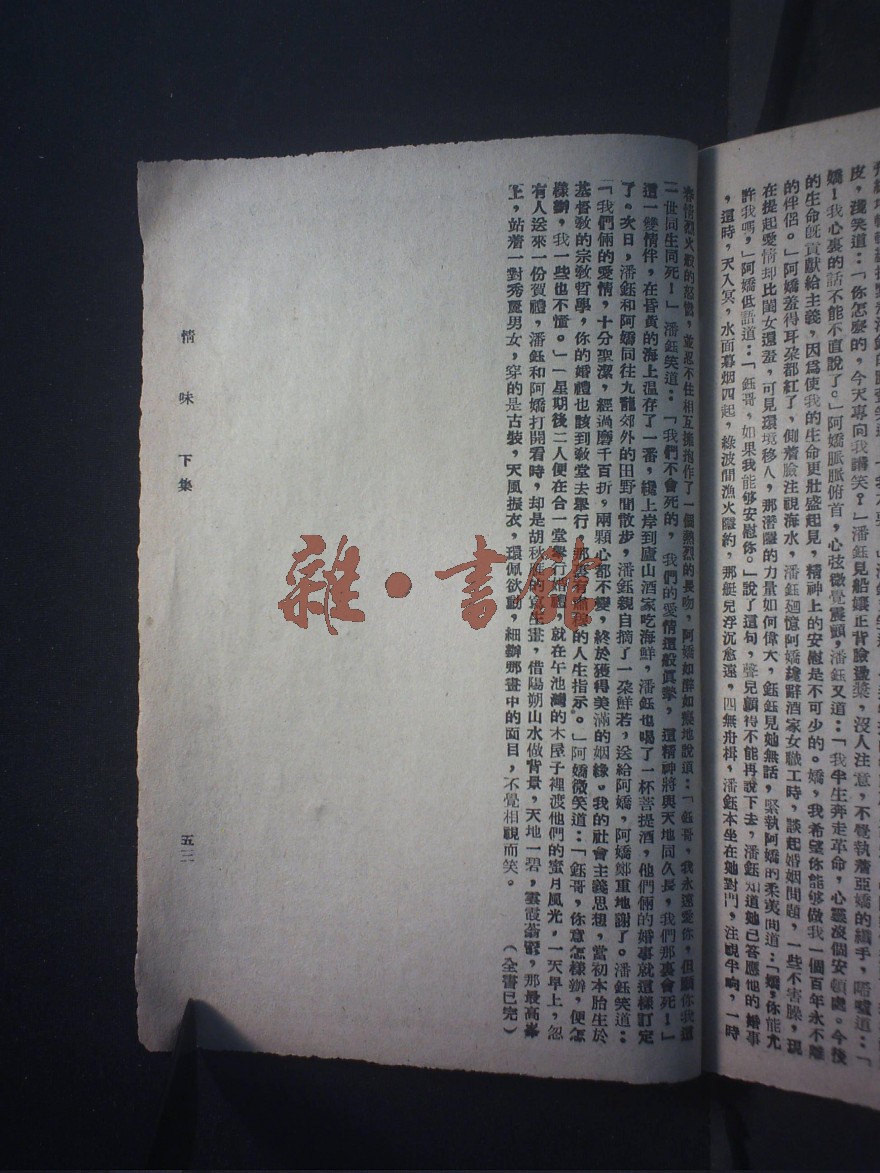 皮，淺笑道：「你怎麽的，今天專向我講笑？」潘鈺見船孃正背臉盪槳，沒人注意，不覺執着亞嬌的纖手，唔噓道：「
嬌！我心裏的話不能不直說了。」阿嬌脈脈俯首，心弦微覺震顫，潘鈺又道：「我半生奔走革命，心靈沒個安頓處。今後
的生命旣貢獻給主義，因爲使我的生命更壯盛起見，精神上的安慰是不可少的。嬌，我希望你能够做我一個百年永不離
的伴侶。」阿嬌羞得耳朶都紅了，側着臉注視海水，潘鈺迴憶阿嬌纔辭酒家女職工時，談起婚姻問題，一些不害臊，現
在提起愛情却比閨女還羞，可見環境移人，那潛隱的力量如何偉大，鈺鈺見她無話，緊執阿嬌的柔荑問道：「嬌，你能允
許我嗎，」阿嬌低語道：「鈺哥，如果我能够安慰你。」說了這句，聲兒顫得不能再說下去，潘鈺知道她已答應他的婚事
，這時，天入冥，水面幕烟四起，綠波間漁火隱約，那艇兒浮沉愈遠，四無舟楫，潘鈺本坐在她對門，注視半晌，一時
春情烈火般的怒熾，並忍不住相互擁抱作了一個熱烈的長吻，阿嬌如醉如癡地說道：「鈺哥，我永遠愛你，但願你我這
一世同生同死！」潘鈺笑道：「我們不會死的，我們的愛情這般眞摯，這精神將與天地同久長，我們那裏會死！」
這一雙情伴，在昏黄的海上温存了一番，纔上岸到廬山酒家吃海鮮，潘鈺也喝了一杯菩提酒，他們倆的婚事就這樣訂定
了。次日，潘鈺和阿嬌同往九龍郊外的田野間散步，潘鈺親自摘了一朶鮮若，送給阿嬌，阿嬌鄭重地謝了。潘鈺笑道：
「我們倆的愛情，十分聖潔，經過磨千百折，兩顆心都不變，終於獲得美滿的姻緣。我的社會主義思想，當初本胎生於
基督敎的宗敎哲學，你的婚禮也該到敎堂去舉行，那裏有的人生指示。」阿嬌微笑道：「鈺哥，你意怎樣辦，便怎
樣辦，我一些也不懂。」一星期後二人便在合一堂舉行婚禮，就在午池灣的木屋子裡渡他們的蜜月風光，一天早上，忽
有人送來一份賀禮，潘鈺和阿嬌打開看時，却是胡秋的寫生畫，借陽朔山水做背景，天地一碧，雲霞蓊鬱，那最高峯
上，站着一對秀麗男女，穿的是古裝，天風振衣，環佩欲動，細辦那畫中的面目，不覺相視而笑。　（全書已完）
情味　下集　五三
雜·書館